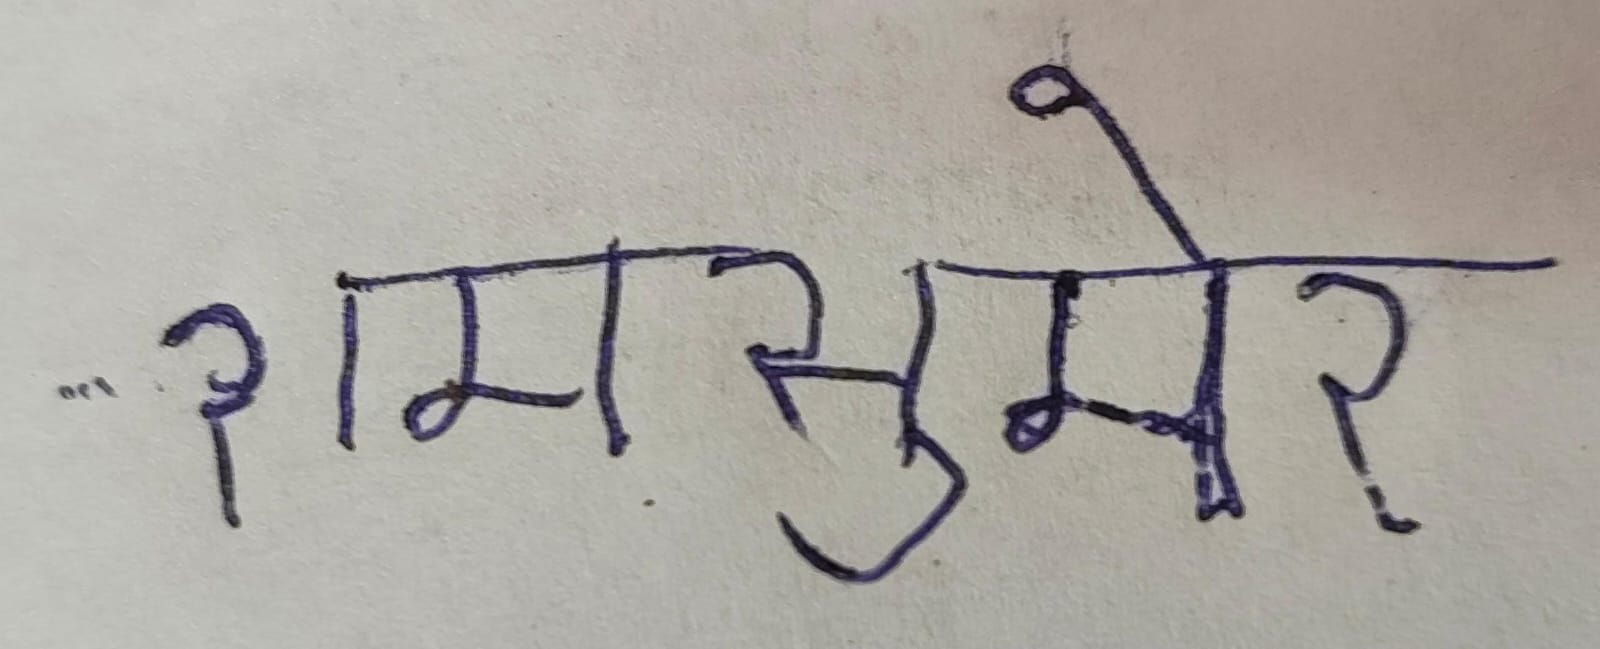 रामसुमेर